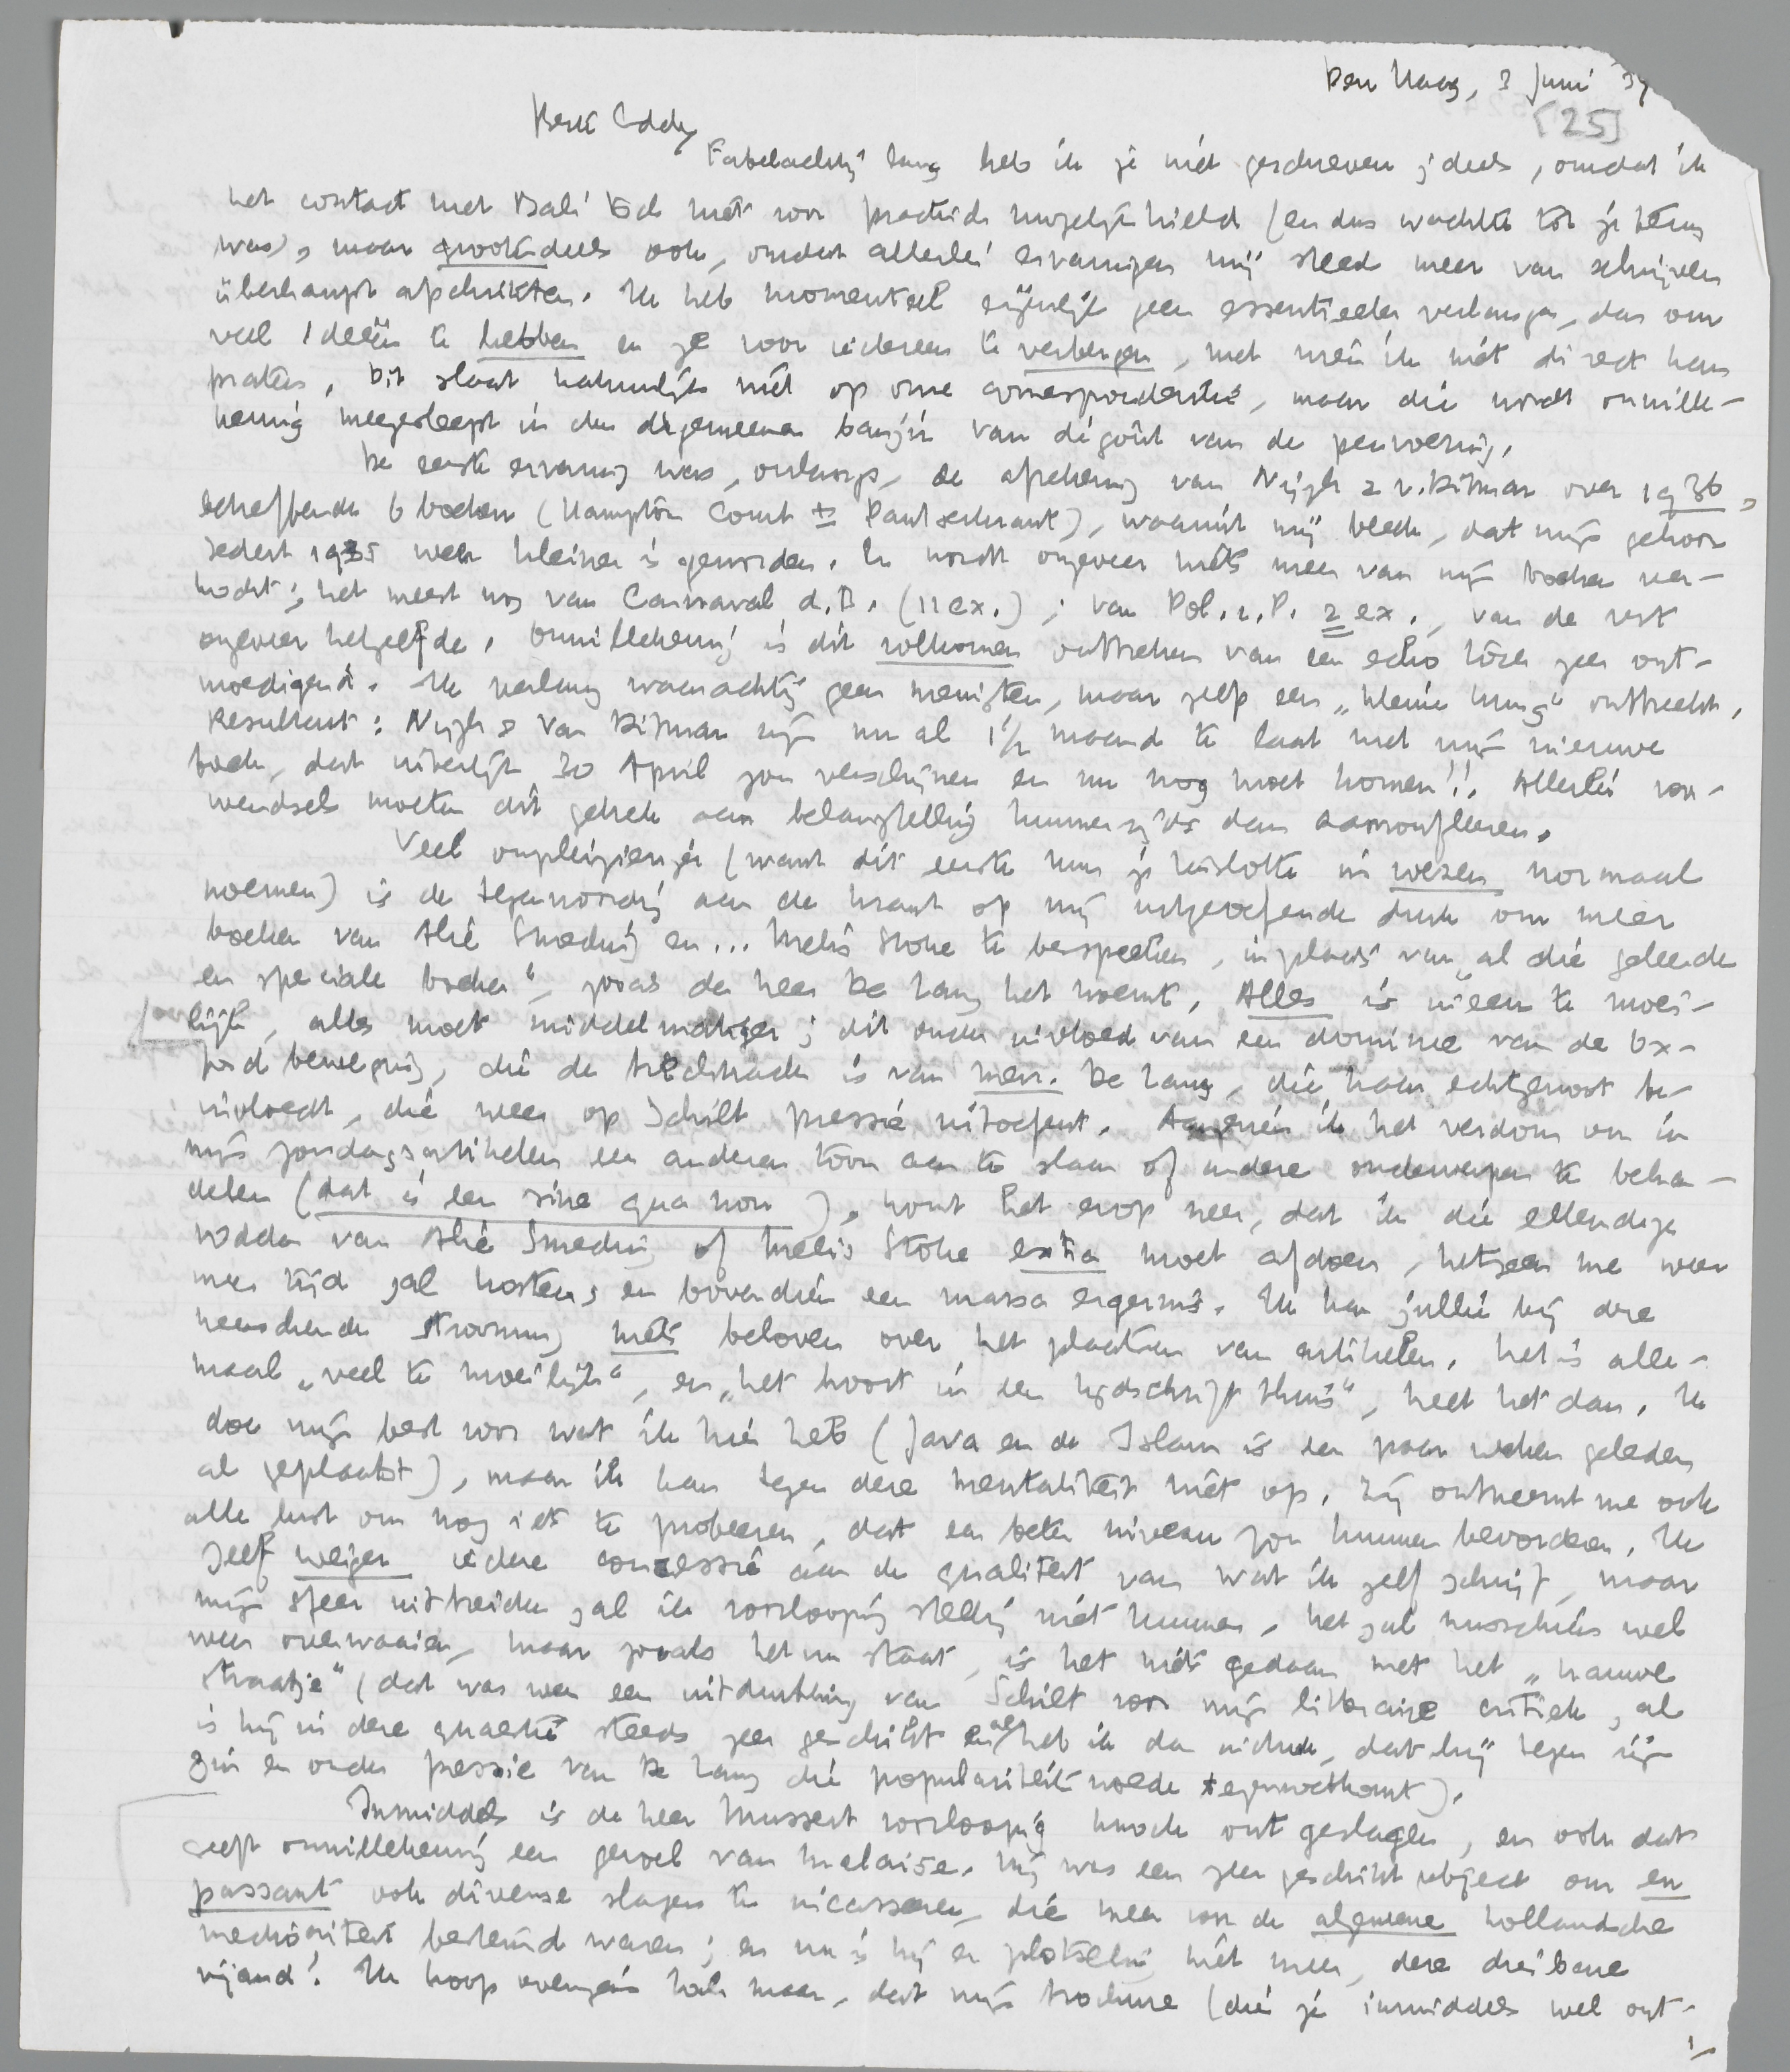 Den Haag, 3 Juni '37
[25]
Beste Eddy
Fabelachtig lang heb ik je niet geschreven; deels, omdat ik
het contact met Bali toch niet voor practisch mogelijk hield (en dus wachtte tot je terug
was), maar grootendeels ook, omdat allerlei ervaringen mij steeds meer van schrijven
überhaupt afschrikten. Ik heb momenteel eigenlijk geen essentieeler verlangen, dan om
veel ideeën te hebben en ze voor iedereen te verbergen, met wien ik niet direct kan
praten. Dit slaat natuurlijk niet op onze correspondentie, maar die wordt onwille-
keurig meegesleept in den algemeenen banjir van dégoût van de penvoering.
De eerste ervaring was, onlangs, de afrekening van Nijgh & v. Ditmar over 1936,
betreffende 6 boeken (Hampton Court t/m Dautzenkraut), waaruit mij bleek, dat mijn gehoor
sedert 1935 weer kleiner is geworden. Er wordt ongeveer niets meer van mijn boeken ver-
kocht; het meest nog van Carnaval d. B. (11 ex.); van Pol. z. P. 2 ex., van de rest
ongeveer hetzelfde. Onwillekeurig is dit volkomen ontbreken van een echo toch zeer ont-
moedigend. Ik verlang waarachtig geen menigten, maar zelfs een „kleine kring" ontbreekt.
Resultaat: Nijgh & Van Ditmar zijn nu al 1½ maand te laat met mijn nieuwe
boek, dat uiterlijk 30 April zou verschijnen en nu nog moet komen!! Allerlei voor-
wendsels moeten dit gebrek aan belangstelling hunnerzijds dan camoufleeren.
Veel onpleizieriger (want dit eerste kun je tenslotte in wezen normaal
noemen) is de tegenwoordig aan de krant op mij uitgeoefende druk om meer
boeken van Alie Smeding en... Melis Stoke te bespreken, in plaats van „al die geleerde
en speciale boeken", zooals de heer De Lang het noemt. Alles is ineens te moei-
lijk, alles moet middelmatiger; dit onder invloed van een dominee van de Ox-
fordbeweging, die de biechtvader is van mevr. De Lang, die haar echtgenoot be-
invloedt, die weer op Schilt pressie uitoefent. Aangezien ik het verdom om in
mijn zondagsartikelen een anderen toon aan te slaan of andere onderwerpen te behan-
delen (dat is een sine qua non), komt het erop neer, dat ik die ellendige
vodden van Alie Smeding of Melis Stoke extra moet afdoen, hetgeen me weer
meer tijd zal kosten; en bovendien een massa ergernis. Ik kan jullie bij deze
heerschende strooming niets beloven over het plaatsen van artikelen. Het is alle-
maal „veel te moeilijk", en „het hoort in een tijdschrift thuis", heet het dan. Ik
doe mijn best voor wat ik hier heb (Java en de Islam is een paar weken geleden
al geplaatst), maar ik kan tegen deze mentaliteit niet op. Zij ontneemt me ook
alle lust om nog iets te probeeren, dat een beter niveau zou kunnen bevorderen. Ik
zelf weiger iedere concessie aan de qualiteit van wat ik zelf schrijf, maar
mijn sfeer uitbreiden zal ik voorloopig stellig niet kunnen. Het zal misschien wel
weer overwaaien, maar zooals het nu staat, is het niets gedaan met het „nauwe
straatje" (dat was weer een uitdrukking van Schilt voor mijn litteraire critiek, al
is hij in deze quaestie steeds zeer geschikt en al heb ik den indruk, dat hij tegen zijn
zin en onder pressie van De Lang die populariteitswoede tegemoetkomt).
Inmiddels is de heer Mussert voorloopig knock out geslagen, en ook dat
geeft onwillekeurig een gevoel van malaise. Hij was een zeer geschikt object om en
passant ook diverse slagen te incasseren, die meer voor de algemene hollandsche
mediocriteit bestemd waren; en nu is hij er plotseling niet meer, deze dierbare
vijand! Ik hoop overigens toch maar, dat mijn brochure (die je inmiddels wel ont-
1